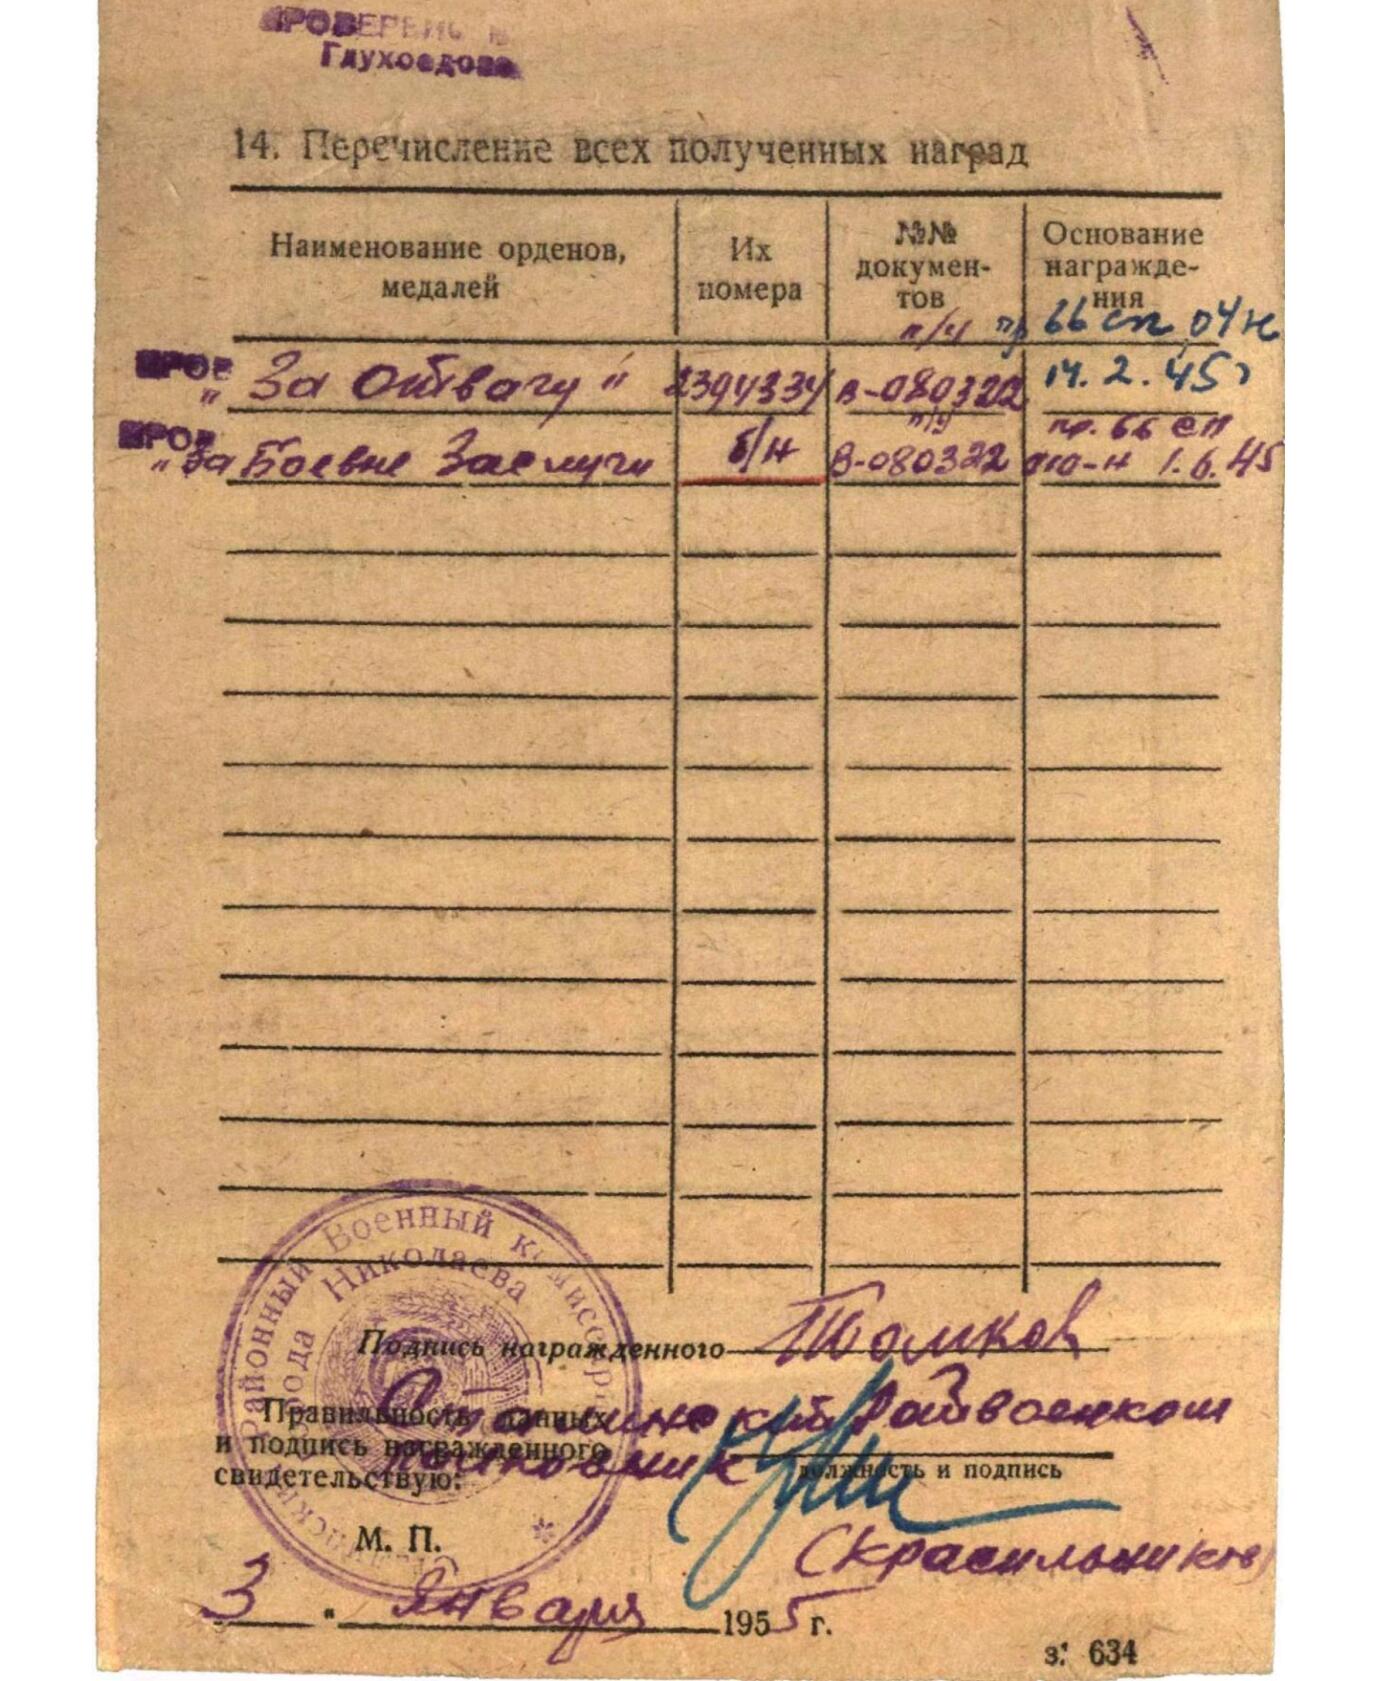 Глухоедова
14. Перечисление всех полученных наград
Наименование орденов, медалей
Их номера
№№ докумен-тов
Основание награжде-ния
п/у пр 66 сп 04 н
ПРОВ
„За отвагу“ 2394334 В-080322 14.2.45 г
п/у пр. 66 сп
ПРОВ
„За Боевые Заслуги б/н В-080322 010-н 1.6.45
Районный Военный комиссариат
города Николаева
Подпись награжденного Томков
Сталинский Райвоенком
Правильность данных
и подпись награжденного
свидетельствую:
полковник
должность и подпись
М. П.
(Красильников)
3 " Января 1955 г.
з. 634